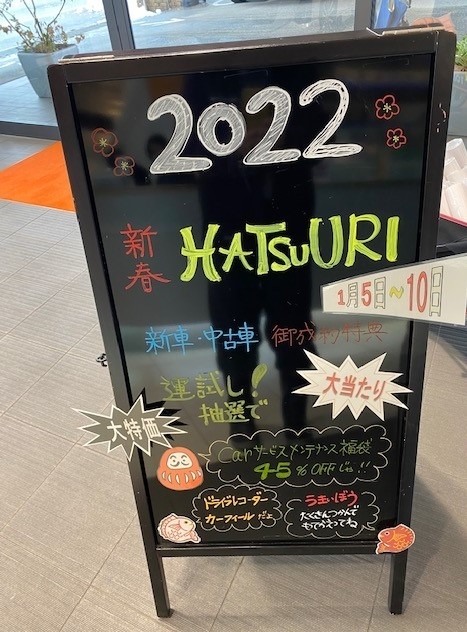 2022
新春 HATSuURI
1月5日~10日
新車・中古車 御成約特典
運試し!
抽選で
大当たり
大特価
Carサービスメンテナンス福袋
45%OFFじゃ!!
ドライブレコーダー
カーフィルムだよ
うまいぼう
たくさんつかんで
もてかえってね